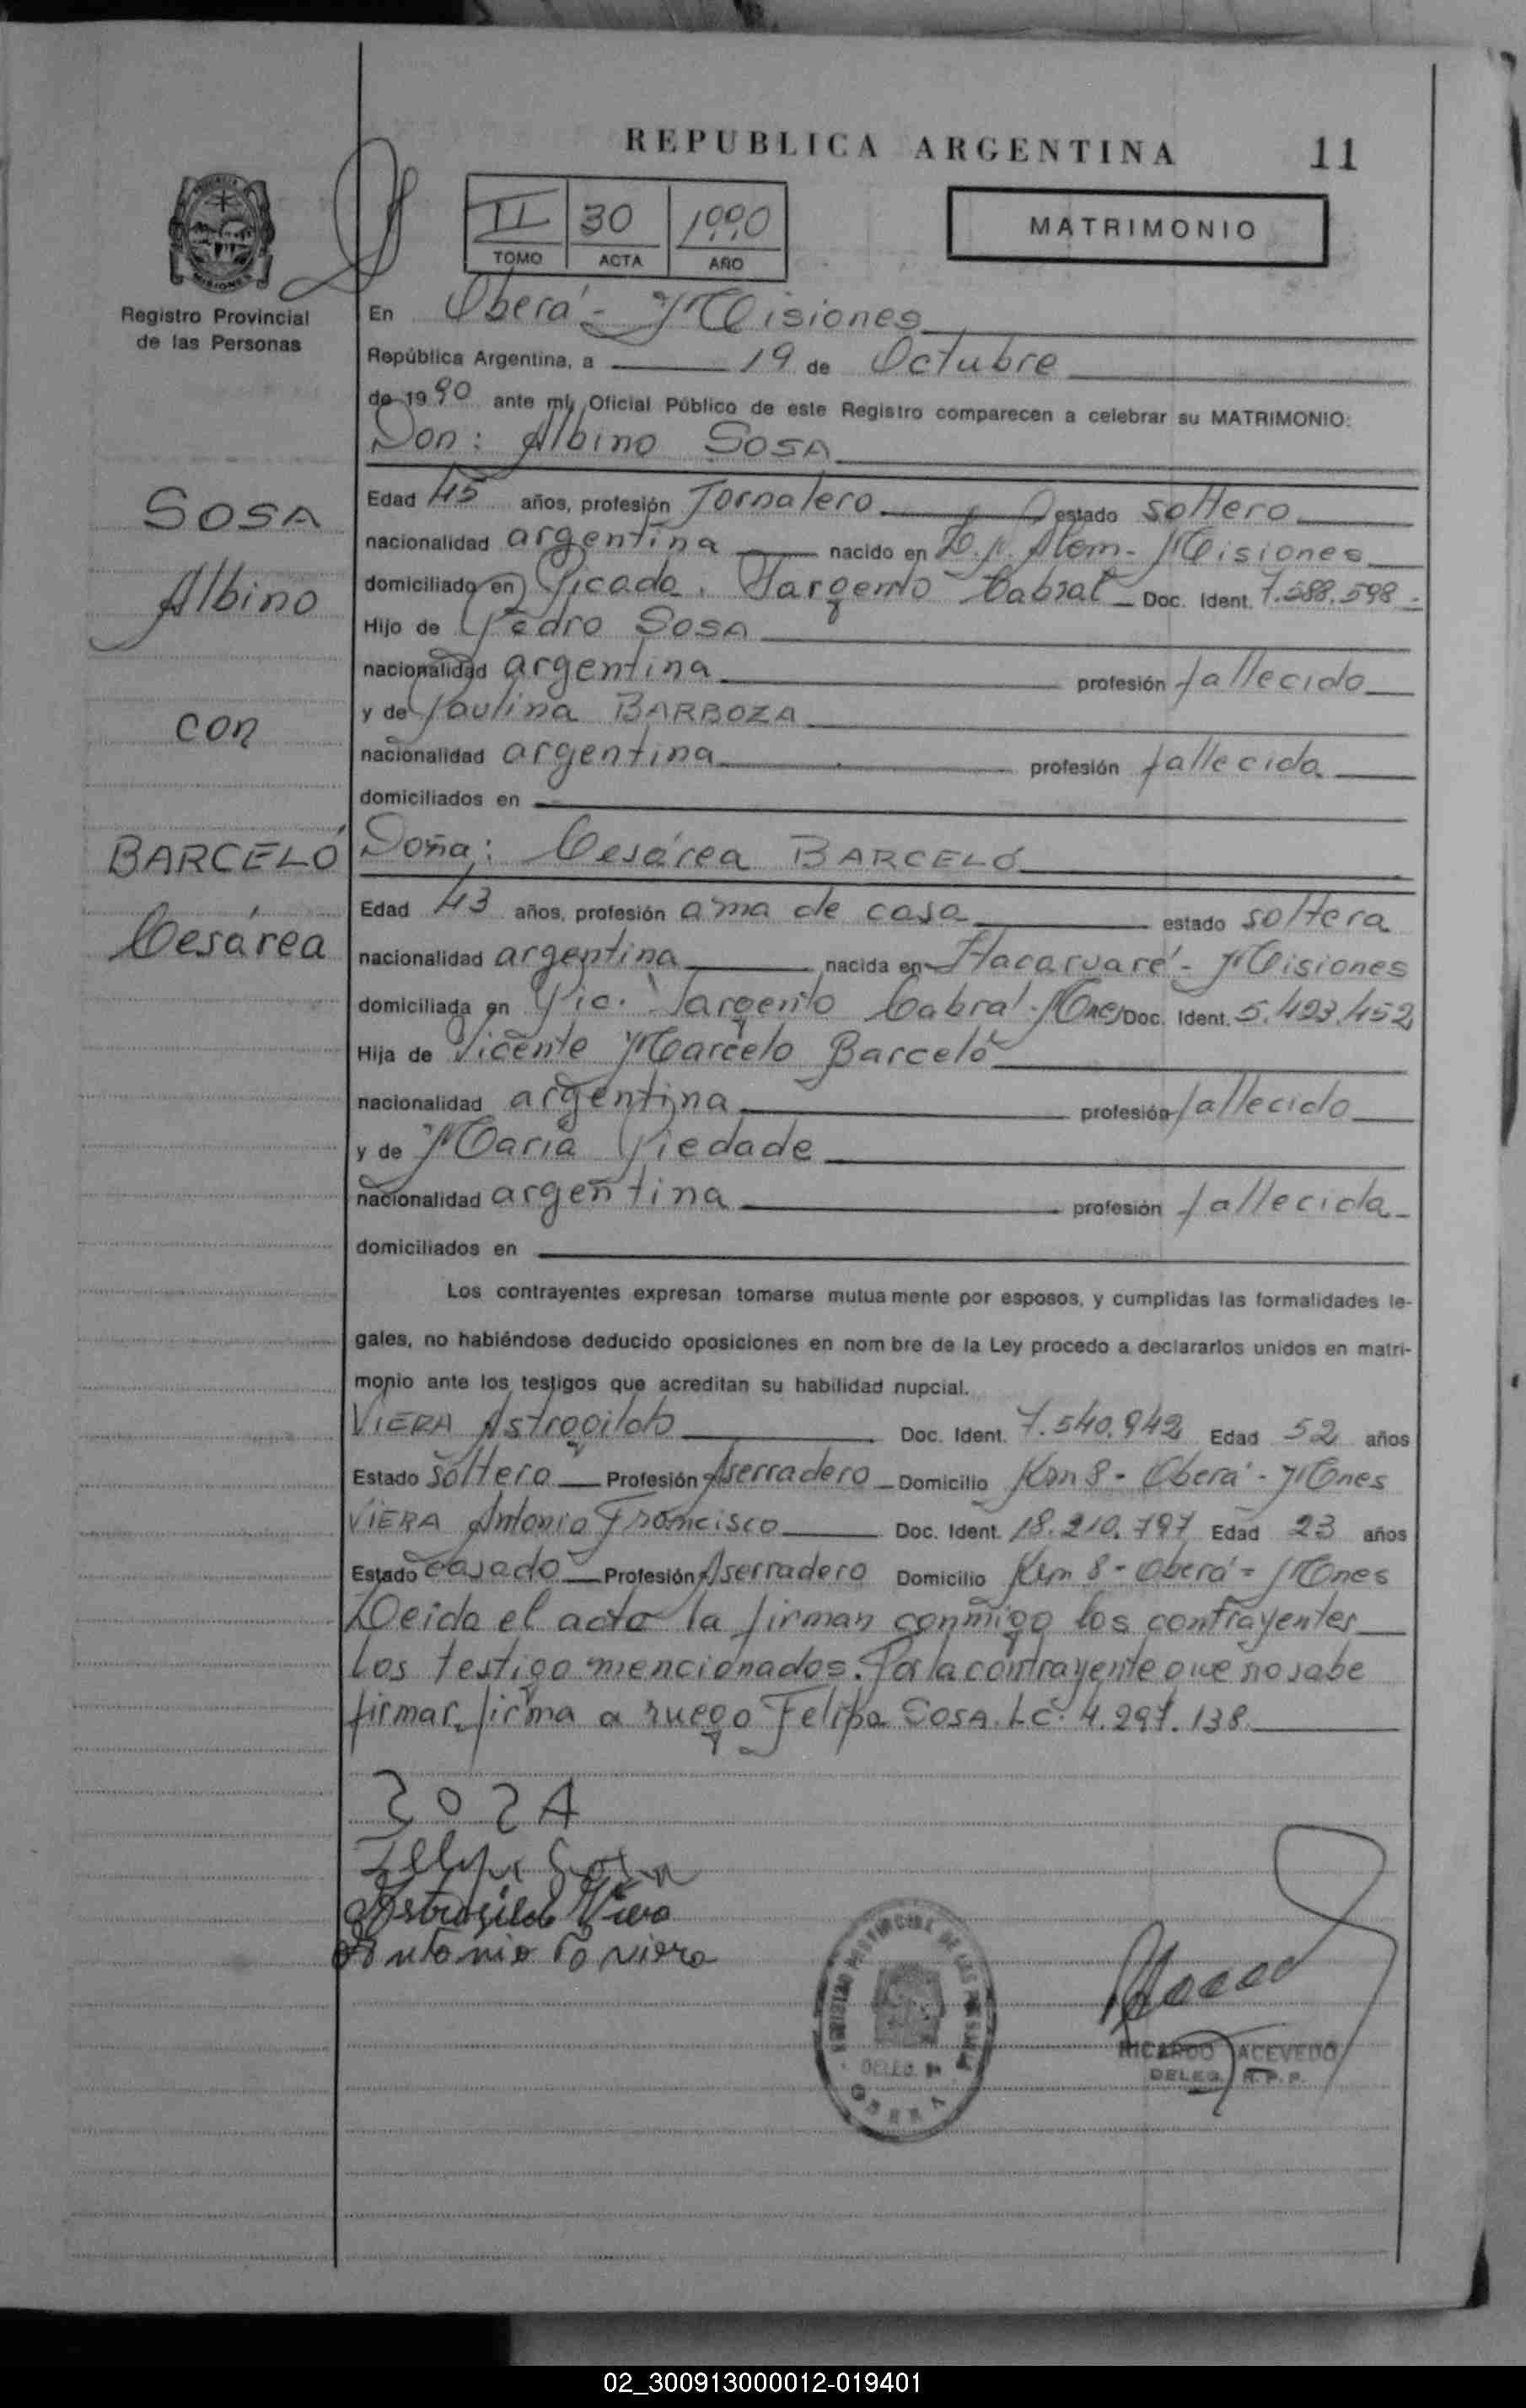 REPUBLICA ARGENTINA
11
II 30 1990
TOMO ACTA AÑO
MATRIMONIO
Registro Provincial
de las Personas
En Oberá - Misiones
República Argentina, a 19 de Octubre
de 1990 ante mí, Oficial Público de este Registro comparecen a celebrar su MATRIMONIO:
Don: Albino SOSA
SOSA
Albino
con
BARCELÓ
Cesárea
Edad 45 años, profesión Jornalero estado soltero
nacionalidad argentina nacido en L.N. Alem - Misiones
domiciliado en Picada Sargento Cabral Doc. Ident. 7.588.598
Hijo de Pedro SOSA
nacionalidad argentina profesión fallecido
y de Paulina BARBOZA
nacionalidad argentina profesión fallecida
domiciliados en
Doña: Cesárea BARCELÓ
Edad 43 años, profesión ama de casa estado soltera
nacionalidad argentina nacida en Itacaruaré - Misiones
domiciliada en Pic. Sargento Cabral - Mnes Doc. Ident. 5.493.452
Hija de Vicente Marcelo Barceló
nacionalidad argentina profesión fallecido
y de María Piedade
nacionalidad argentina profesión fallecida
domiciliados en
Los contrayentes expresan tomarse mutuamente por esposos, y cumplidas las formalidades le-
gales, no habiéndose deducido oposiciones en nombre de la Ley procedo a declararlos unidos en matri-
monio ante los testigos que acreditan su habilidad nupcial.
VIERA Astrogildo Doc. Ident. 7.540.942 Edad 52 años
Estado soltero Profesión Aserradero Domicilio Km 8 - Oberá - Mnes
VIERA Antonio Francisco Doc. Ident. 18.210.797 Edad 23 años
Estado casado Profesión Aserradero Domicilio Km 8 - Oberá - Mnes
Leida el acta la firman conmigo los contrayentes
los testigo mencionados. Por la contrayente que no sabe
firmar, firma a ruego Felipa SOSA. LC. 4.297.138
SOSA
Felipa Sosa
Astrogildo Viera
Antonio F viera
REGISTRO PROVINCIAL DE LAS PERSONAS
DELEG.
OBERA
RICARDO ACEVEDO
DELEG. R. P. P.
02_300913000012-019401